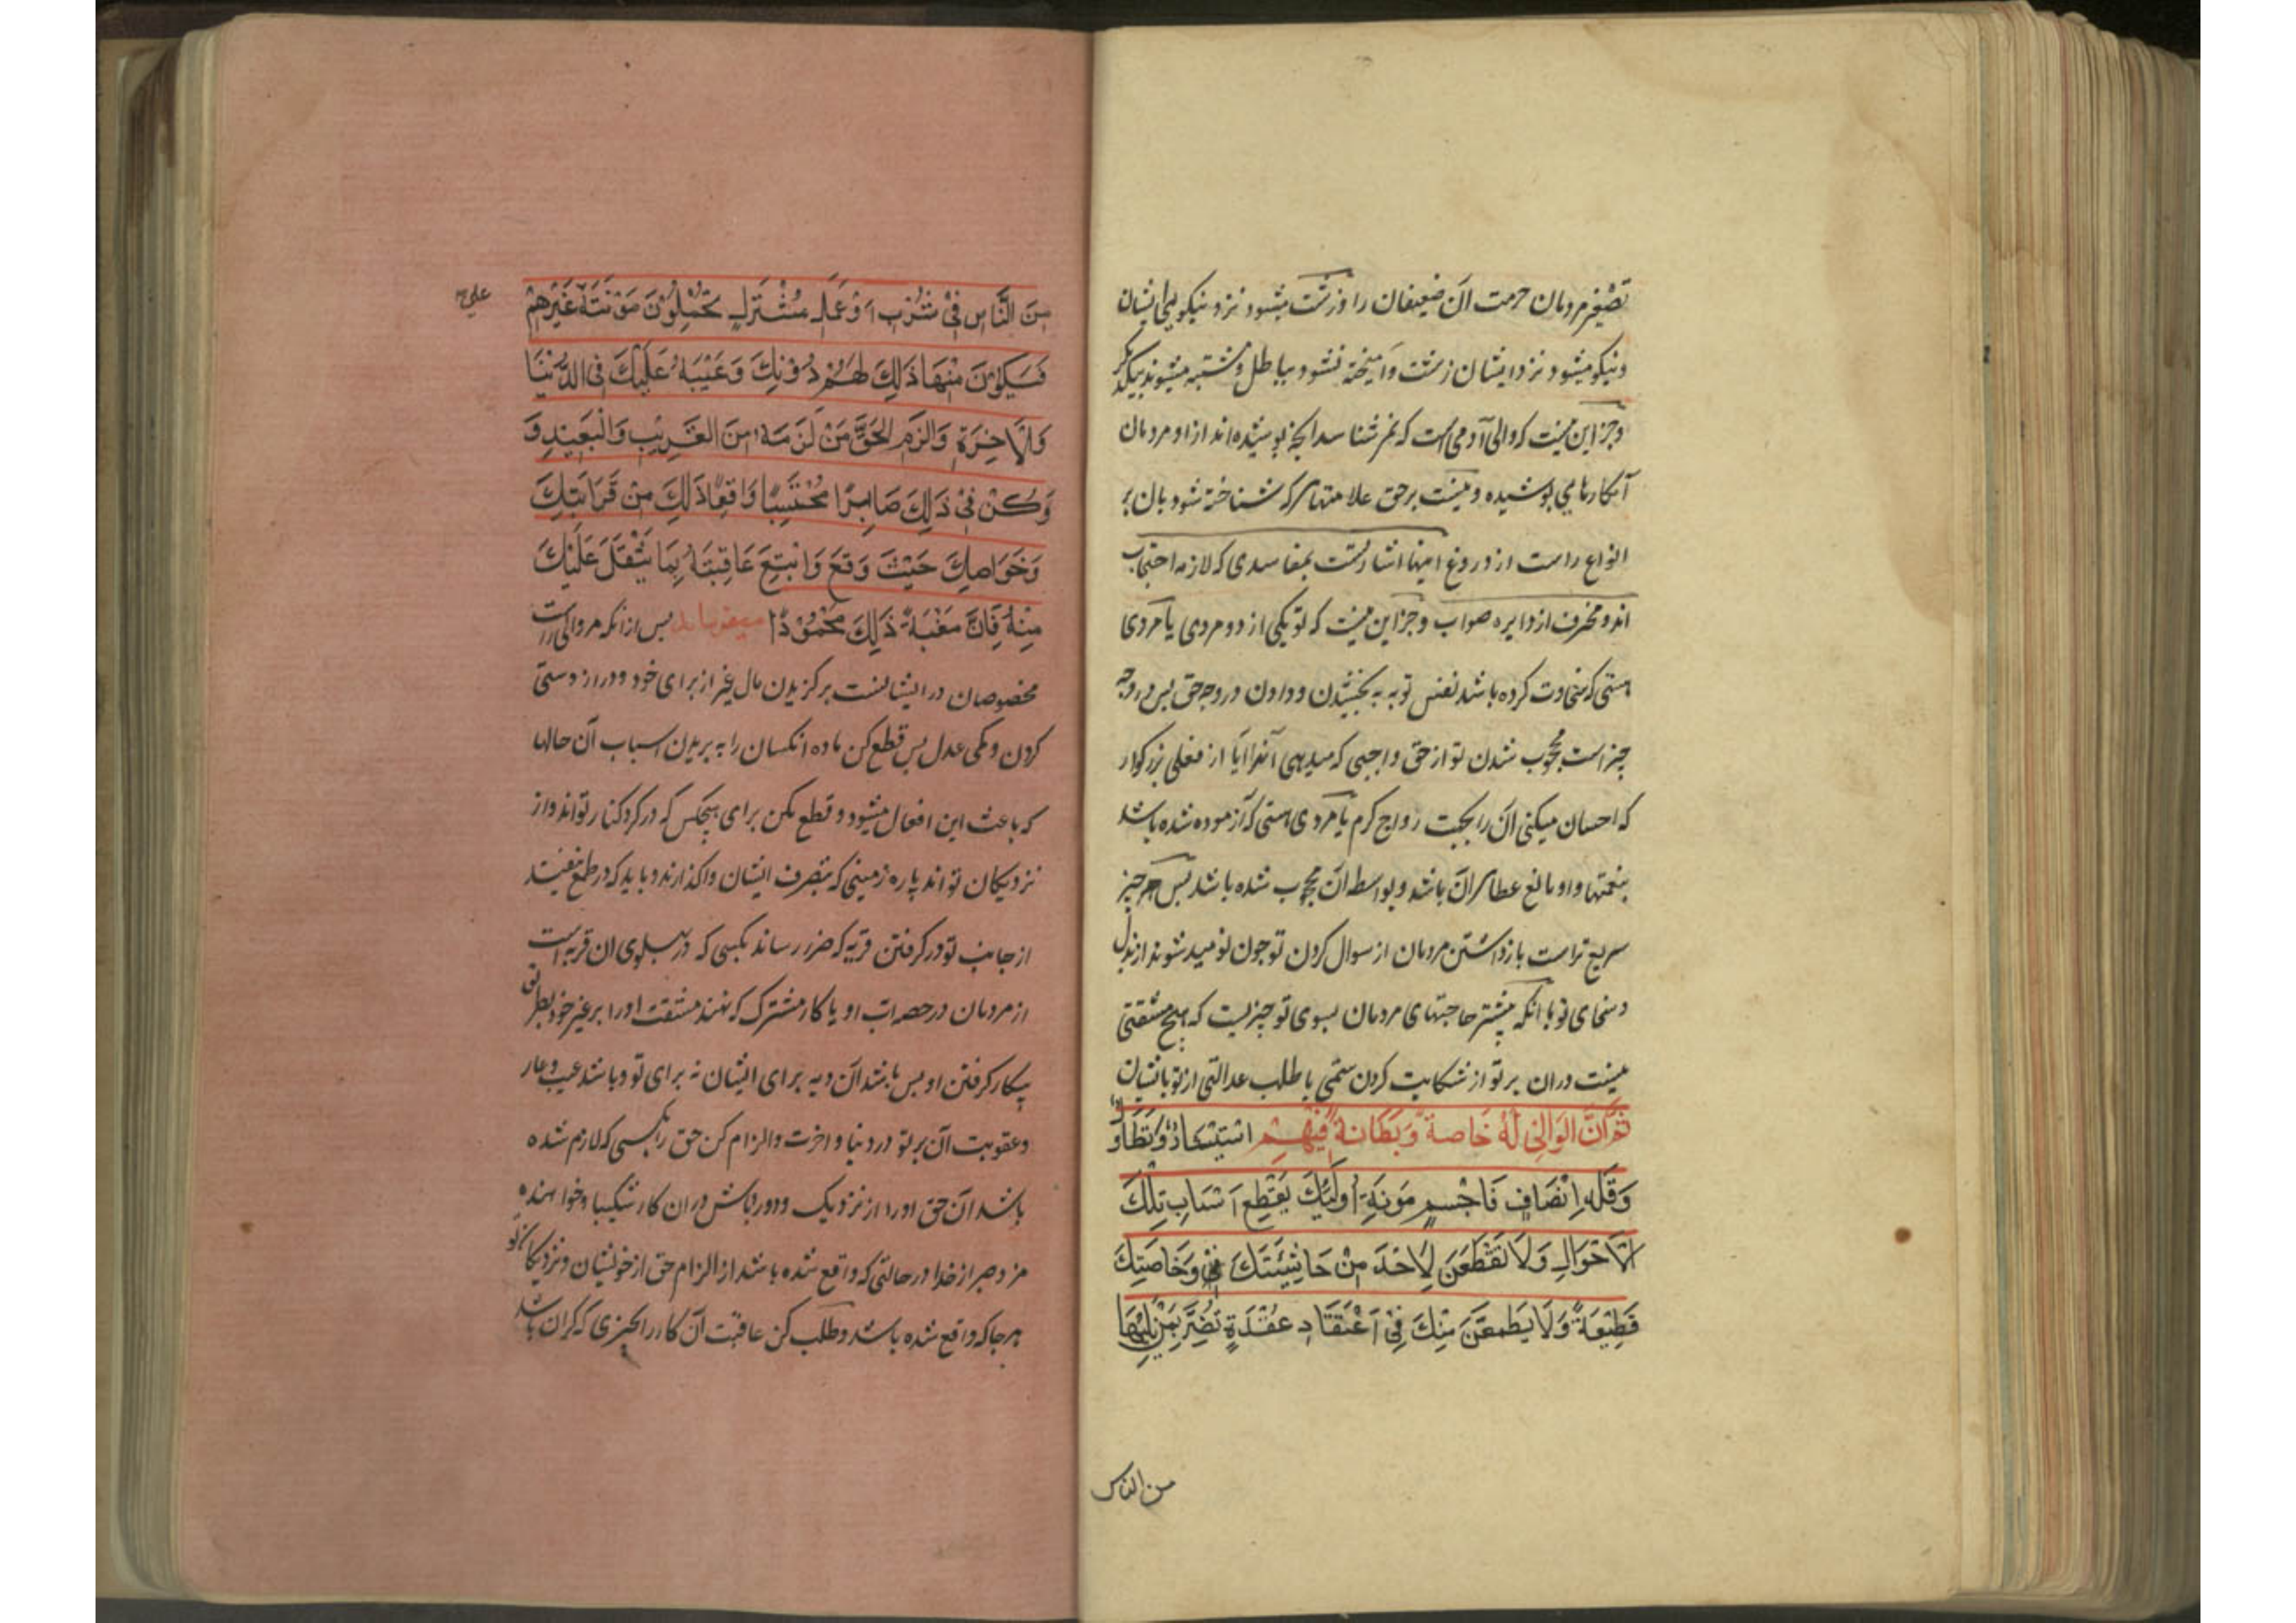 تصغیر مردمان حرمت آن ضعیفان را و زشت میشود نزد نیکویهای ایشان
و نیکو میشود نزد ایشان زشت و آمیخته نشود بباطل و مشتبه میشوند بیکدیگر
و جز این نیست که والی آدمی است که نمرشناسد آنچه پوشیده‌اند از او مردمان
آنکارهای پوشیده و نیست بر حق علامتها که شناخته شود بآن بر
انواع راست از دروغ اینها اشارتست بمفاسدی که لازمه احتجاب
اند و منحرف از دایره صواب و جز این نیست که تو یکی از دو مردی یا مردی
هستی که سخاوت کرده باشد نفس تو به بخشیدن و دادن در وجه حق پس در وجه
چیز است محجوب شدن تو از حق واجبی که میدهی آنرا ایا از فعلی بزرکوار
که احسان میکنی آن را بجهت رواج کرم یا مردی هستی که آزموده شده باشد
بنعمتها و او مانع عطا کران باشد و بواسطه آن محجوب شده باشد پس هر چیز
سریع تر است بازداشتن مردمان از سوال کردن تو چون نومید شوند از بذل
و سخای تو با آنکه بیشتر حاجتهای مردمان بسوی تو چیزیست که هیچ مشقتی
نیست در ان بر تو از شکایت کردن ستمی یا طلب عدالتی از تو بانشان
ثُمَّ اِنَّ الوَالِی لَهُ خَاصةً وَبَطَانةً فِیْهِمْ اسْتِیْثَارٌ وَتَطَاوُلٌ
وَقِلَّةُ اِنْصَافٍ فَاحْسِمْ مَؤنَةَ اُولَئِكَ بِقَطِعِ اَسْبَابِ تِلْكَ
الْاَحْوَالِ وَلَا تَقْطَعَنَّ لِاَحَدٍ مِنْ حَاشِیَتِكَ وَخَاصَتِكَ
قَطِیْعَةً وَلَا یَطْمَعَنَّ مِنْكَ فِیْ اعْتِقَادِ عُقْدَةٍ تَضُرُّ بِمَنْ یَلِیْهَا
من الناس
مِنَ النَّاسِ فِیْ شُرْبٍ اَوْ عَمَلٍ مُشْتَرَكٍ یَحْمِلُوْنَ مَؤنَتَهُ عَلَی غَیْرِهِمْ
فَیَكُوْنَ مَهْنَاُ ذَلِكَ لَهُمْ دُوْنَكَ وَعَیْبُهُ عَلَیْكَ فِی الدُّنْیَا
وَالْاٰخِرَةِ وَالزَمِ الحَقَّ مَنْ لَزِمَهُ مِنَ القَرِیْبِ وَالْبَعِیْدِ وَ
وَكُنْ فِیْ ذَلِكَ صَابِرًا مُحْتَسِبًا وَاقِعًا ذَلِكَ مِنْ قَرَابَتِكَ
وَخَوَاصِكَ حَیْثُ وَقَعَ وَابْتَغِ عَاقِبَتَهُ بِمَا یَثْقُلُ عَلَیْكَ
مِنْهُ فَاِنَّ مَغَبَّةَ ذَلِكَ مَحْمُوْدَةٌ میفرماید پس از انکه مر والی راست
مخصوصان در ایشانست برکزیدن مال غیر از برای خود و دراز دستی
کردن و کمی عدل پس قطع کن ماده انکسان را به بریدن اسباب آن حالها
که باعث این افعال میشود و قطع مکن برای هیچکس که در کرد کنار تواند و از
نزدیکان تو اند پاره زمینی که بتصرف ایشان واکذارند و باید که در طمع نیفتند
از جانب تو در کرفتن قریه که ضرر رساند بکسی که در پهلوی ان قریه است
از مردمان در حصه اب او یا کار مشترک که نهند مشقت او را بر غیر خود بطریق
بیکار کرفتن او پس باشد آن دیه برای ایشان نه برای تو و باشد عیب و عار
و عقوبت آن بر تو در دنیا و اخرت و الزام کن حق را بکسی که لازم شده
باشد آن حق او را از نزدیک و دور و باش در ان کار شکیبا و خواهنده
مزد صبر از خدا در حالتی که واقع شده باشد از الزام حق از خویشان و نزدیکان تو
هر جا که واقع شده باشد و طلب کن عاقبت آن کار را بچیزی که کران باشد